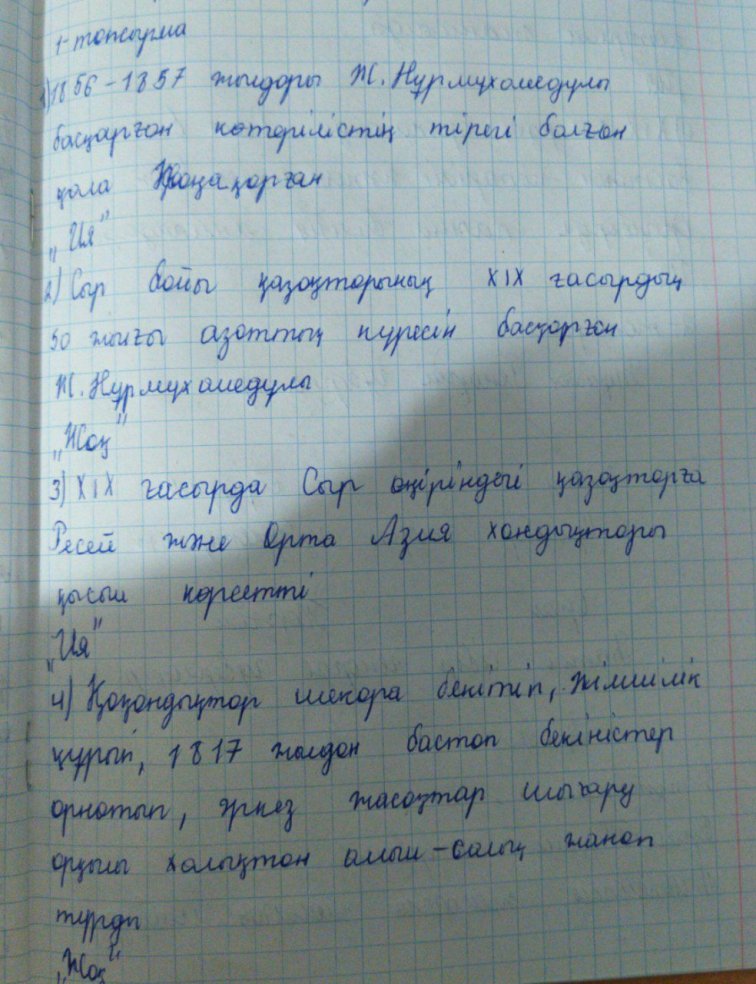 1-тапсырма
1) 1856-1857 жылдары Ж. Нұрмұхамедұлы
басқарған көтерілістің тірегі болған
қала Жаңақорған
„Ия"
2) Сыр бойы қазақтарының XIX ғасырдың
50 жылғы азаттық күресін басқарған
Ж. Нұрмұхамедұлы
„Жоқ"
3) XIX ғасырда Сыр өңіріндегі қазақтарға
Ресей және Орта Азия хандықтары
қысым көрсетті
„Ия"
4) Қоқандықтар шекара бекітіп, жімшілік
құрып, 1817 жылдан бастап бекіністер
орнатып, әркез жасақтар шығару
арқылы халықтан алым-салық жинап
тұрды
„Жоқ"